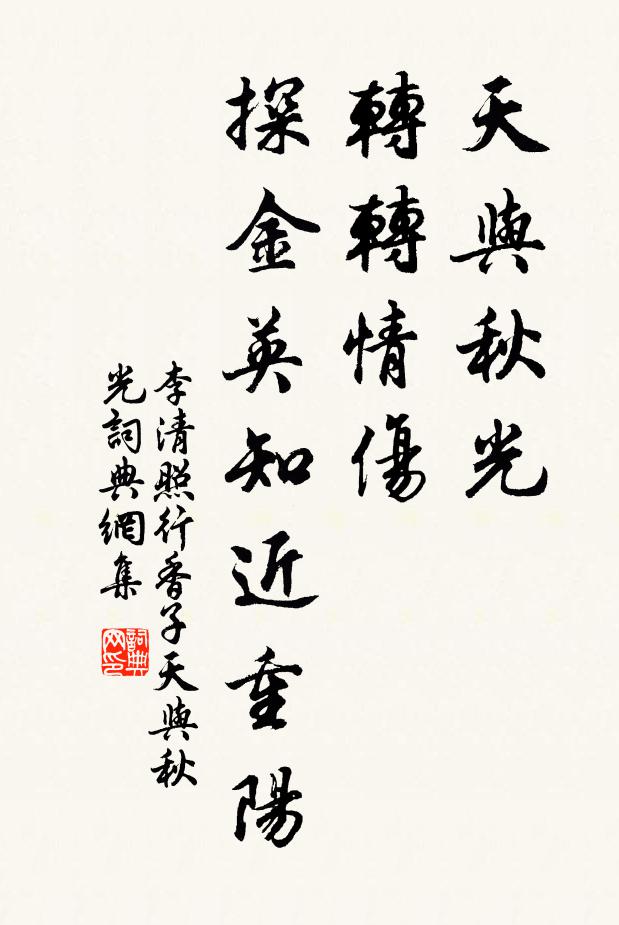 天與秋光
轉轉情傷
探金英知近重陽
李清照行香子天與秋
光詞典網集
詞典
网印